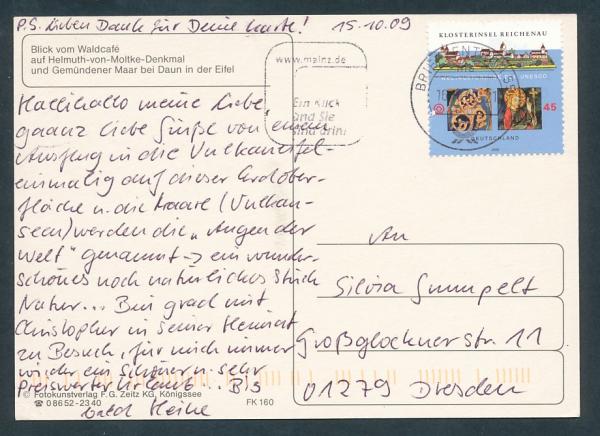 P.S. Lieben Dank für Deine Karte! 15.10.09
Blick vom Waldcafé
auf Helmuth-von-Moltke-Denkmal
und Gemündener Maar bei Daun in der Eifel
Hallihallo meine Liebe,
gaanz liebe Grüße von
Ausflug in die Vulkaneifel-
einmalig auf dieser Erdober-
fläche u. die Maare (Vulkan-
seen) werden die „Augen der
Welt" genannt → ein wunder-
schönes noch natürliches Stück
Natur... Bin grad mit
Christopher in seiner Heimat
zu Besuch, für mich immer
wieder ein schöner u. sehr
preiswerter Urlaub... Bis
bald Heike
© Fotokunstverlag F.G. Zeitz KG, Königssee
☎ 0 86 52-23 40
FK 160
www.mainz.de
Ein Klick
und Sie
sind drin!
BRIEFZENTRUM
KLOSTERINSEL REICHENAU
UNESCO
45
DEUTSCHLAND
An
Silvia Gumpelt
Großglocknerstr. 11
01279 Dresden